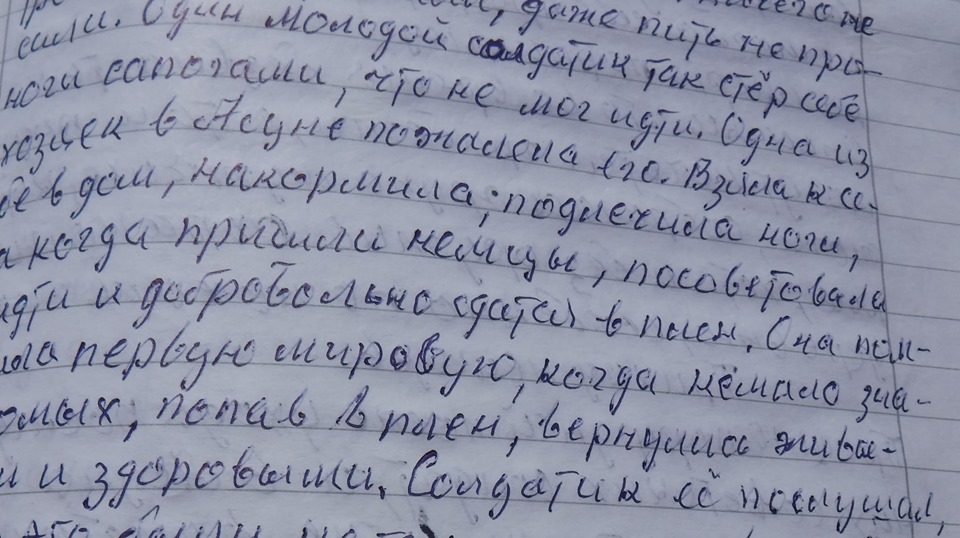 даже пить не про-
сили. Один молодой солдатик так стёр себе
ноги сапогами, что не мог идти. Одна из
хозяек в пожалела его. Взяла к се-
бе в дом, накормила, подлечила ноги,
а когда пришли немцы, посоветовала
идти и добровольно сдаться в плен. Она пом-
ила первую мировую, когда немало зна-
омых, попав в плен, вернулись живы-
и и здоровыми. Солдатик её послушал,